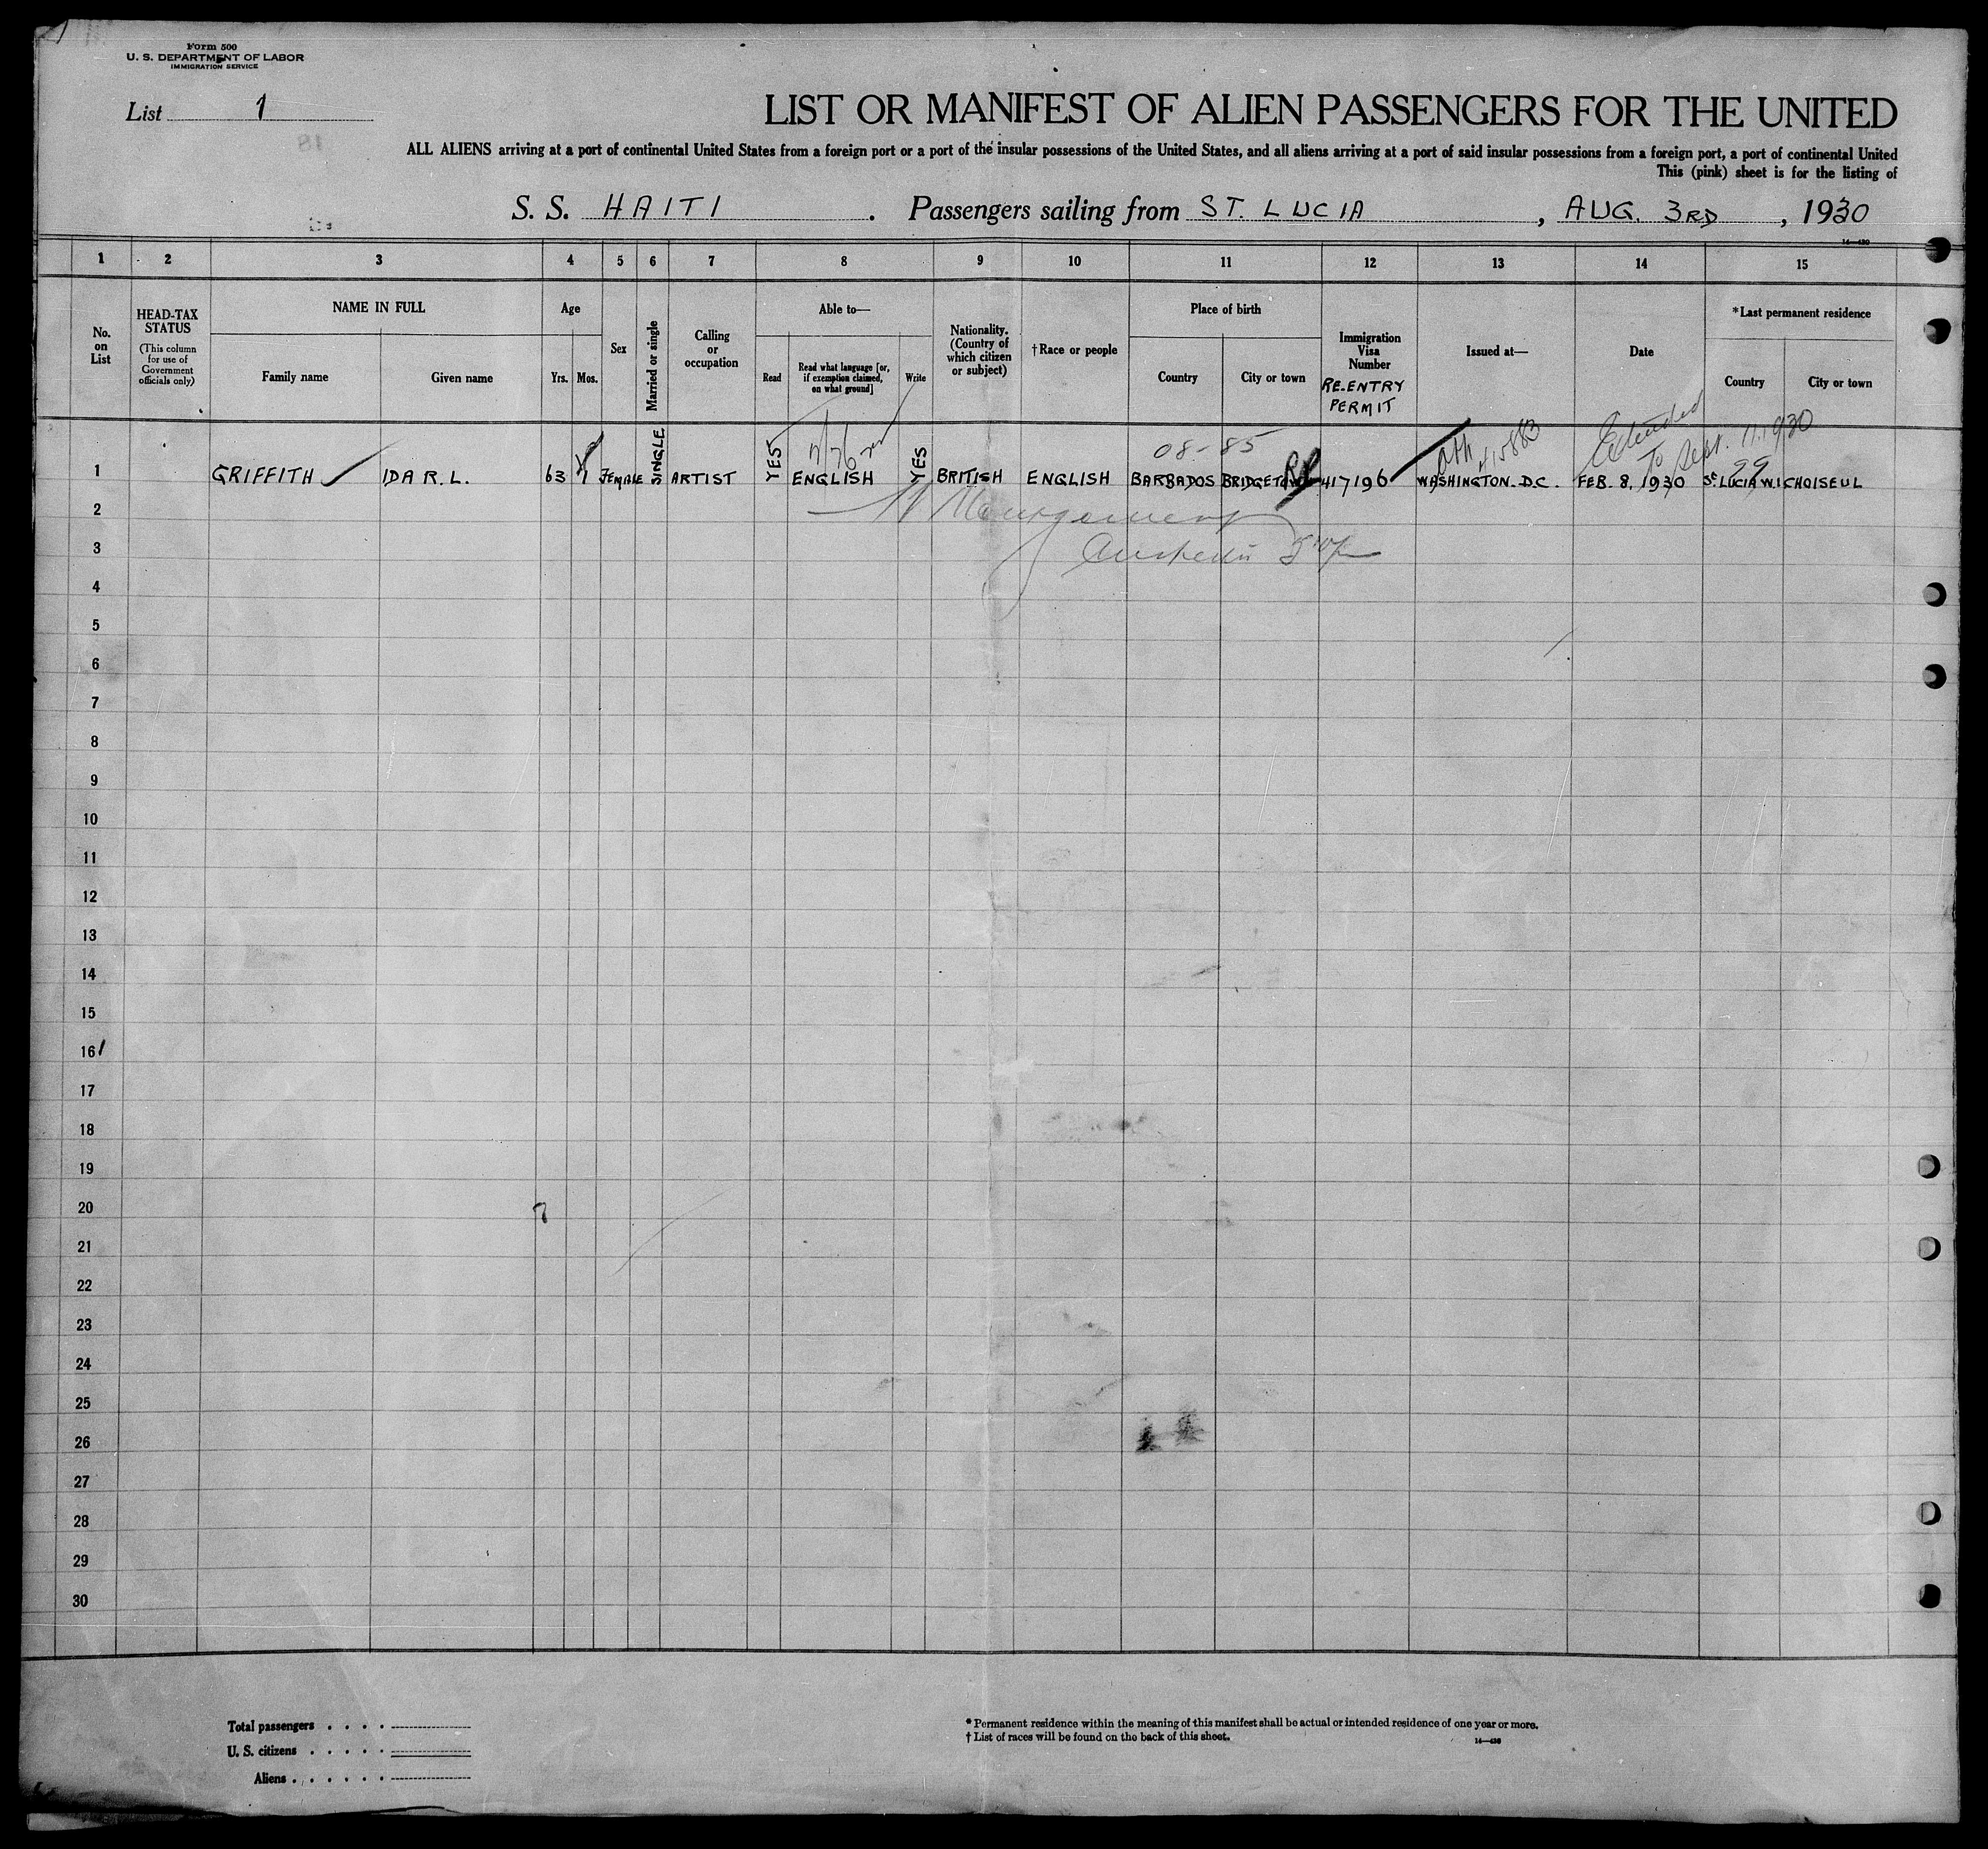 Form 500
U. S. DEPARTMENT OF LABOR
IMMIGRATION SERVICE
List 1
LIST OR MANIFEST OF ALIEN PASSENGERS FOR THE UNITED
ALL ALIENS arriving at a port of continental United States from a foreign port or a port of the insular possessions of the United States, and all aliens arriving at a port of said insular possessions from a foreign port, a port of continental United
This (pink) sheet is for the listing of
S. S. HAITI . Passengers sailing from ST. LUCIA , AUG. 3RD , 1930
1 2 3 4 5 6 7 8 9 10 11 12 13 14 15
No. on List
HEAD-TAX STATUS
(This column for use of Government officials only)
NAME IN FULL
Family name Given name
Age
Yrs. Mos.
Sex
Married or single
Calling or occupation
Able to—
Read
Read what language [or, if exemption claimed, on what ground]
Write
Nationality. (Country of which citizen or subject)
†Race or people
Place of birth
Country City or town
Immigration Visa Number
RE-ENTRY PERMIT
Issued at—
Date
*Last permanent residence
Country City or town
Extended
To Sept. 11. 1930
08-85
1 GRIFFITH IDA R. L. 63 FEMALE SINGLE ARTIST YES ENGLISH YES BRITISH ENGLISH BARBADOS BRIDGETOWN 417196 WASHINGTON. D.C. FEB. 8. 1930 ST. LUCIA W.I CHOISEUL
2
3
4
5
6
7
8
9
10
11
12
13
14
15
16
17
18
19
20
21
22
23
24
25
26
27
28
29
30
Total passengers . . . .
U. S. citizens . . . . .
Aliens . . . . . .
* Permanent residence within the meaning of this manifest shall be actual or intended residence of one year or more.
† List of races will be found on the back of this sheet.